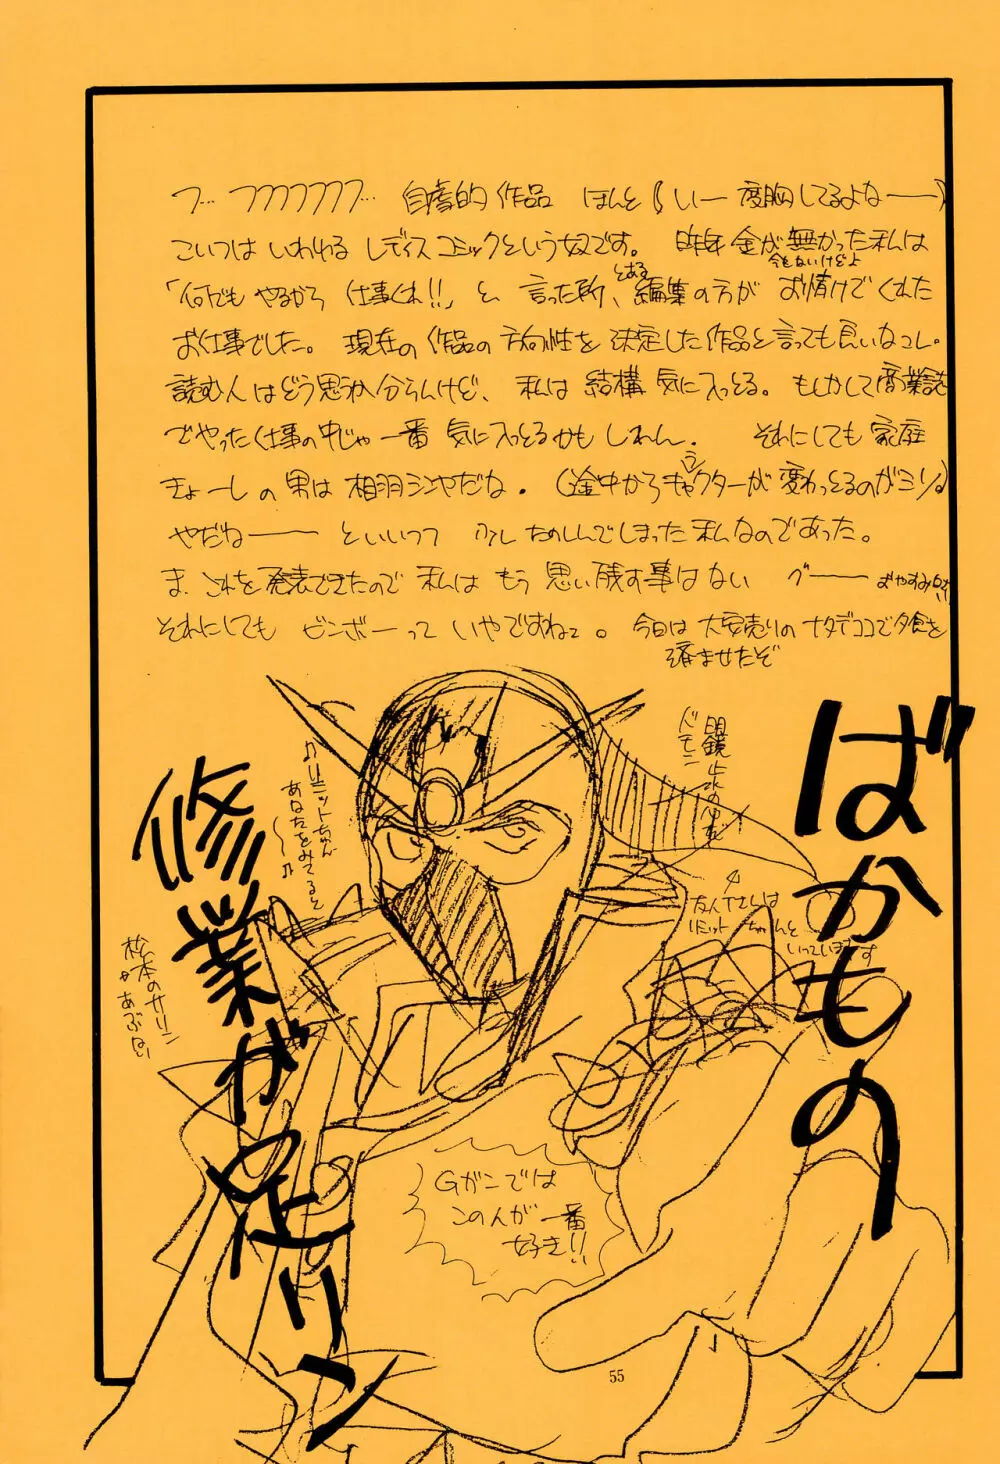 フ… フフフフフフフ… 自虐的作品 ほんと(いー度胸してるよなー)
こいつは いわゆる レディスコミックという奴です。 昨年 金が無かった私は
今もないけどよ
「何でも やるから 仕事くれ!!」と 言った所、とある編集の方が お情けでくれた
お仕事でした。 現在の作品の方向性を決定した作品と言っても良いなコレ。
読む人はどう思うか分らんけど、 私は 結構 気に入っとる。 もしかして商業誌
でやった仕事の中じゃ一番 気に入っとるかもしれん。 それにしても 家庭
きょーしの男は 相羽シンヤだな。(途中からキャラクターが変わっとるのがミソ。)
やだねーー といいつつ 少し たのしんでしまった私なのであった。
ま、これを発表できたので 私は もう 思い残す事はない グーー おやすみなさい
それにしても ビンボーって いやですねェ。 今日は 大安売りのナタデココで夕食を
済ませたぞ
ばかもの
修業が足リン
明鏡止水の
ドモン
♪リミットちゃん
あなたをみてると
〜♪
友人Tさんは
リミットちゃんと
いっています
松本のサリン
があぶない
Gガンでは
この人が一番
好き!!
55